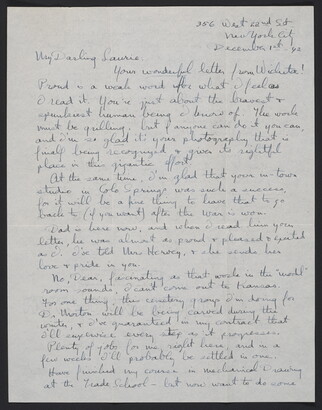 256 West 22nd St.
New York City
December 1st - 42
My Darling Laurie.
Your wonderful letter from Wichita!
Proud is a weak word after what I feel as
I read it. You're just about the bravest &
human being I know of. The work
must be gruelling, but if anyone can do it you can,
and I'm so glad it's your photography that is
finally being recognized & given its rightful
place in this gigantic effort.
At the same time, I'm glad that your in-town
studio in Colo Springs was such a success,
for it will be a fine thing to have that to go
back to (if you want) after the war is won.
Dad is here now, and when I read him your
letter, he was almost as proud & pleased & excited
as I. I've told Mrs Hervey, & she sends her
love & pride in you.
No, Dear, fascinating as that works in the "model"
room sounds, I can't come out to Kansas.
For one thing, this cemetery group I'm doing for
Dr Norton will be being carved during the
winter, & I've guaranteed in my contract that
I'll supervise every step as it progresses.
Plenty of jobs for me, right here, and in a
few weeks I'll probably be settled in one.
Have finished my course in mechanical drawing
at the Trade School - but now want to do some